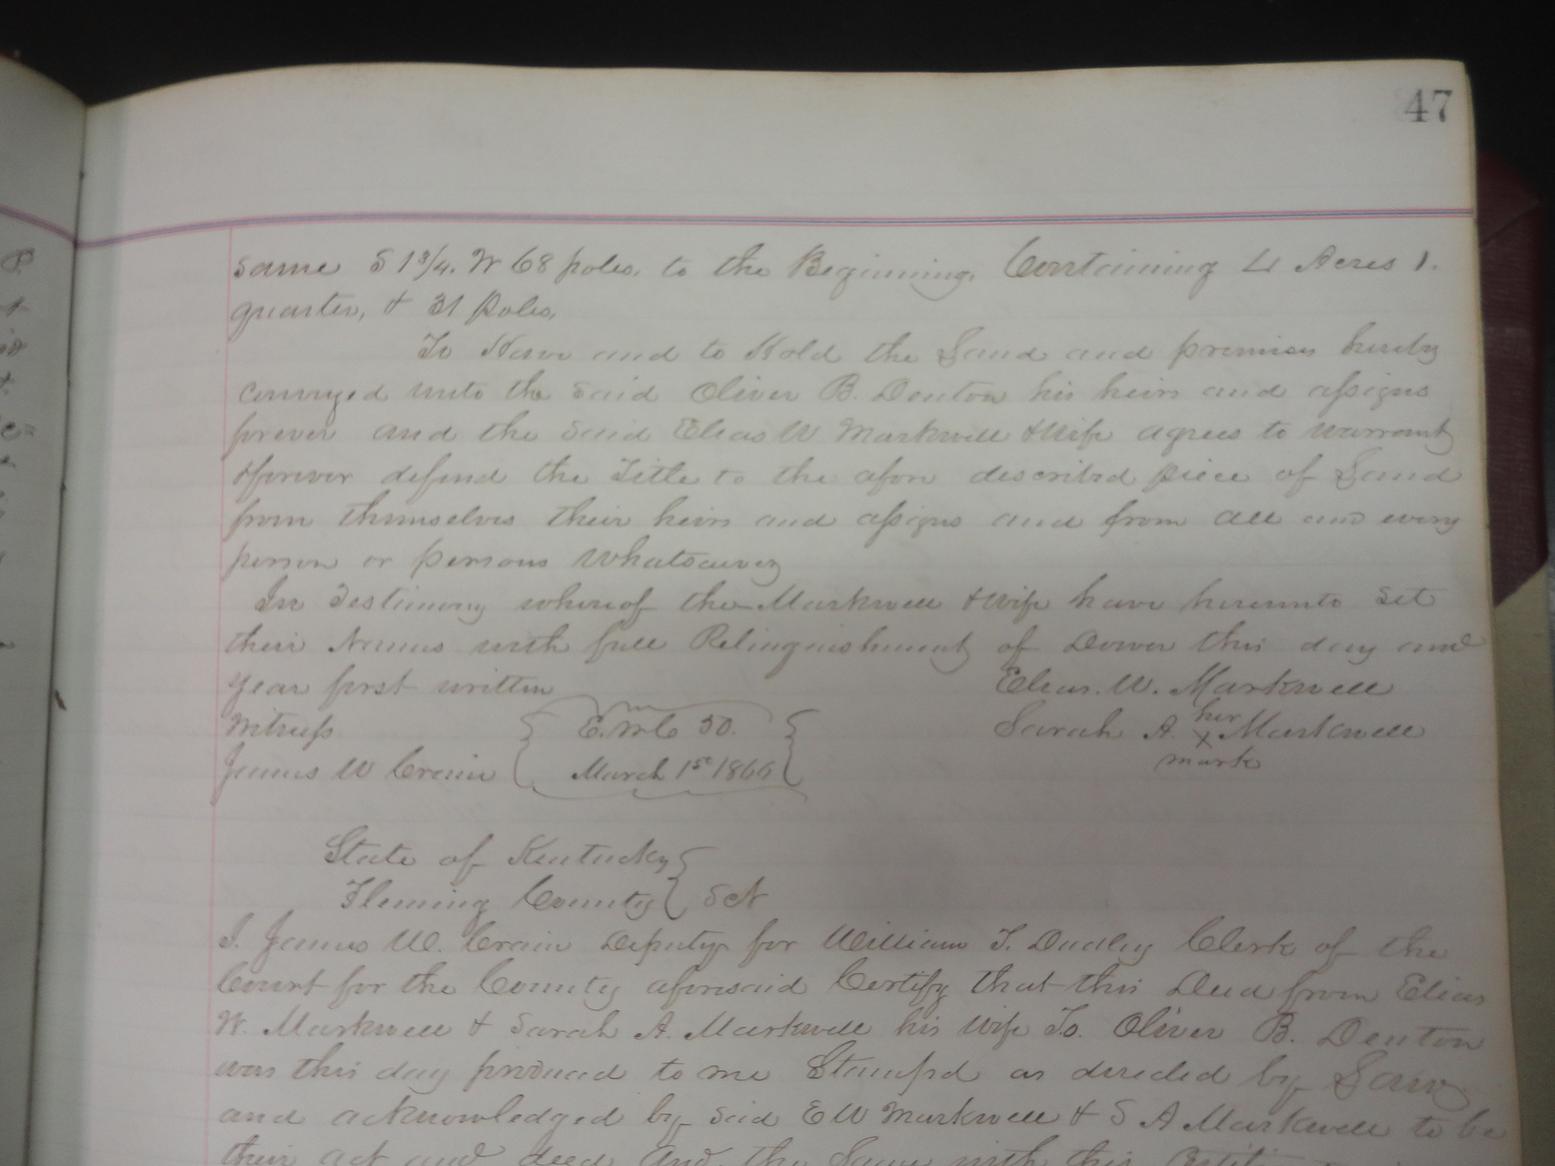 47
same S 1 3/4. W 68 poles. to the Beginning. Containing 4 Acres 1.
quarter, & 31 Poles,
To Have and to Hold the Land and premises hereby
conveyed unto the said Oliver B. Denton his heirs and assigns
forever and the said Elias W Markwell & Wife agrees to warrant
& forever defend the Title to the afore described piece of Land
from themselves their heirs and assigns and from all and every
person or persons Whatsoever
In Testimony whereof the Markwell & Wife have hereunto Set
their Names with full Relinquishment of Dower this day and
year first written
Elias. W. Markwell
Witness
E. M C 50.
Sarah A. her X mark Markwell
James W Crain
March 1st 1866
State of Kentucky
Fleming County Sct
I. James W. Crain Deputy for William T. Dudley Clerk of the
Court for the County aforesaid Certify that this Deed from Elias
W. Markwell & Sarah A. Markwell his Wife To. Oliver B. Denton
was this day produced to me Stampd as direded by Law
and acknowledged by said E W Markwell & S A Markwell to be
their act and deed And the Same with this